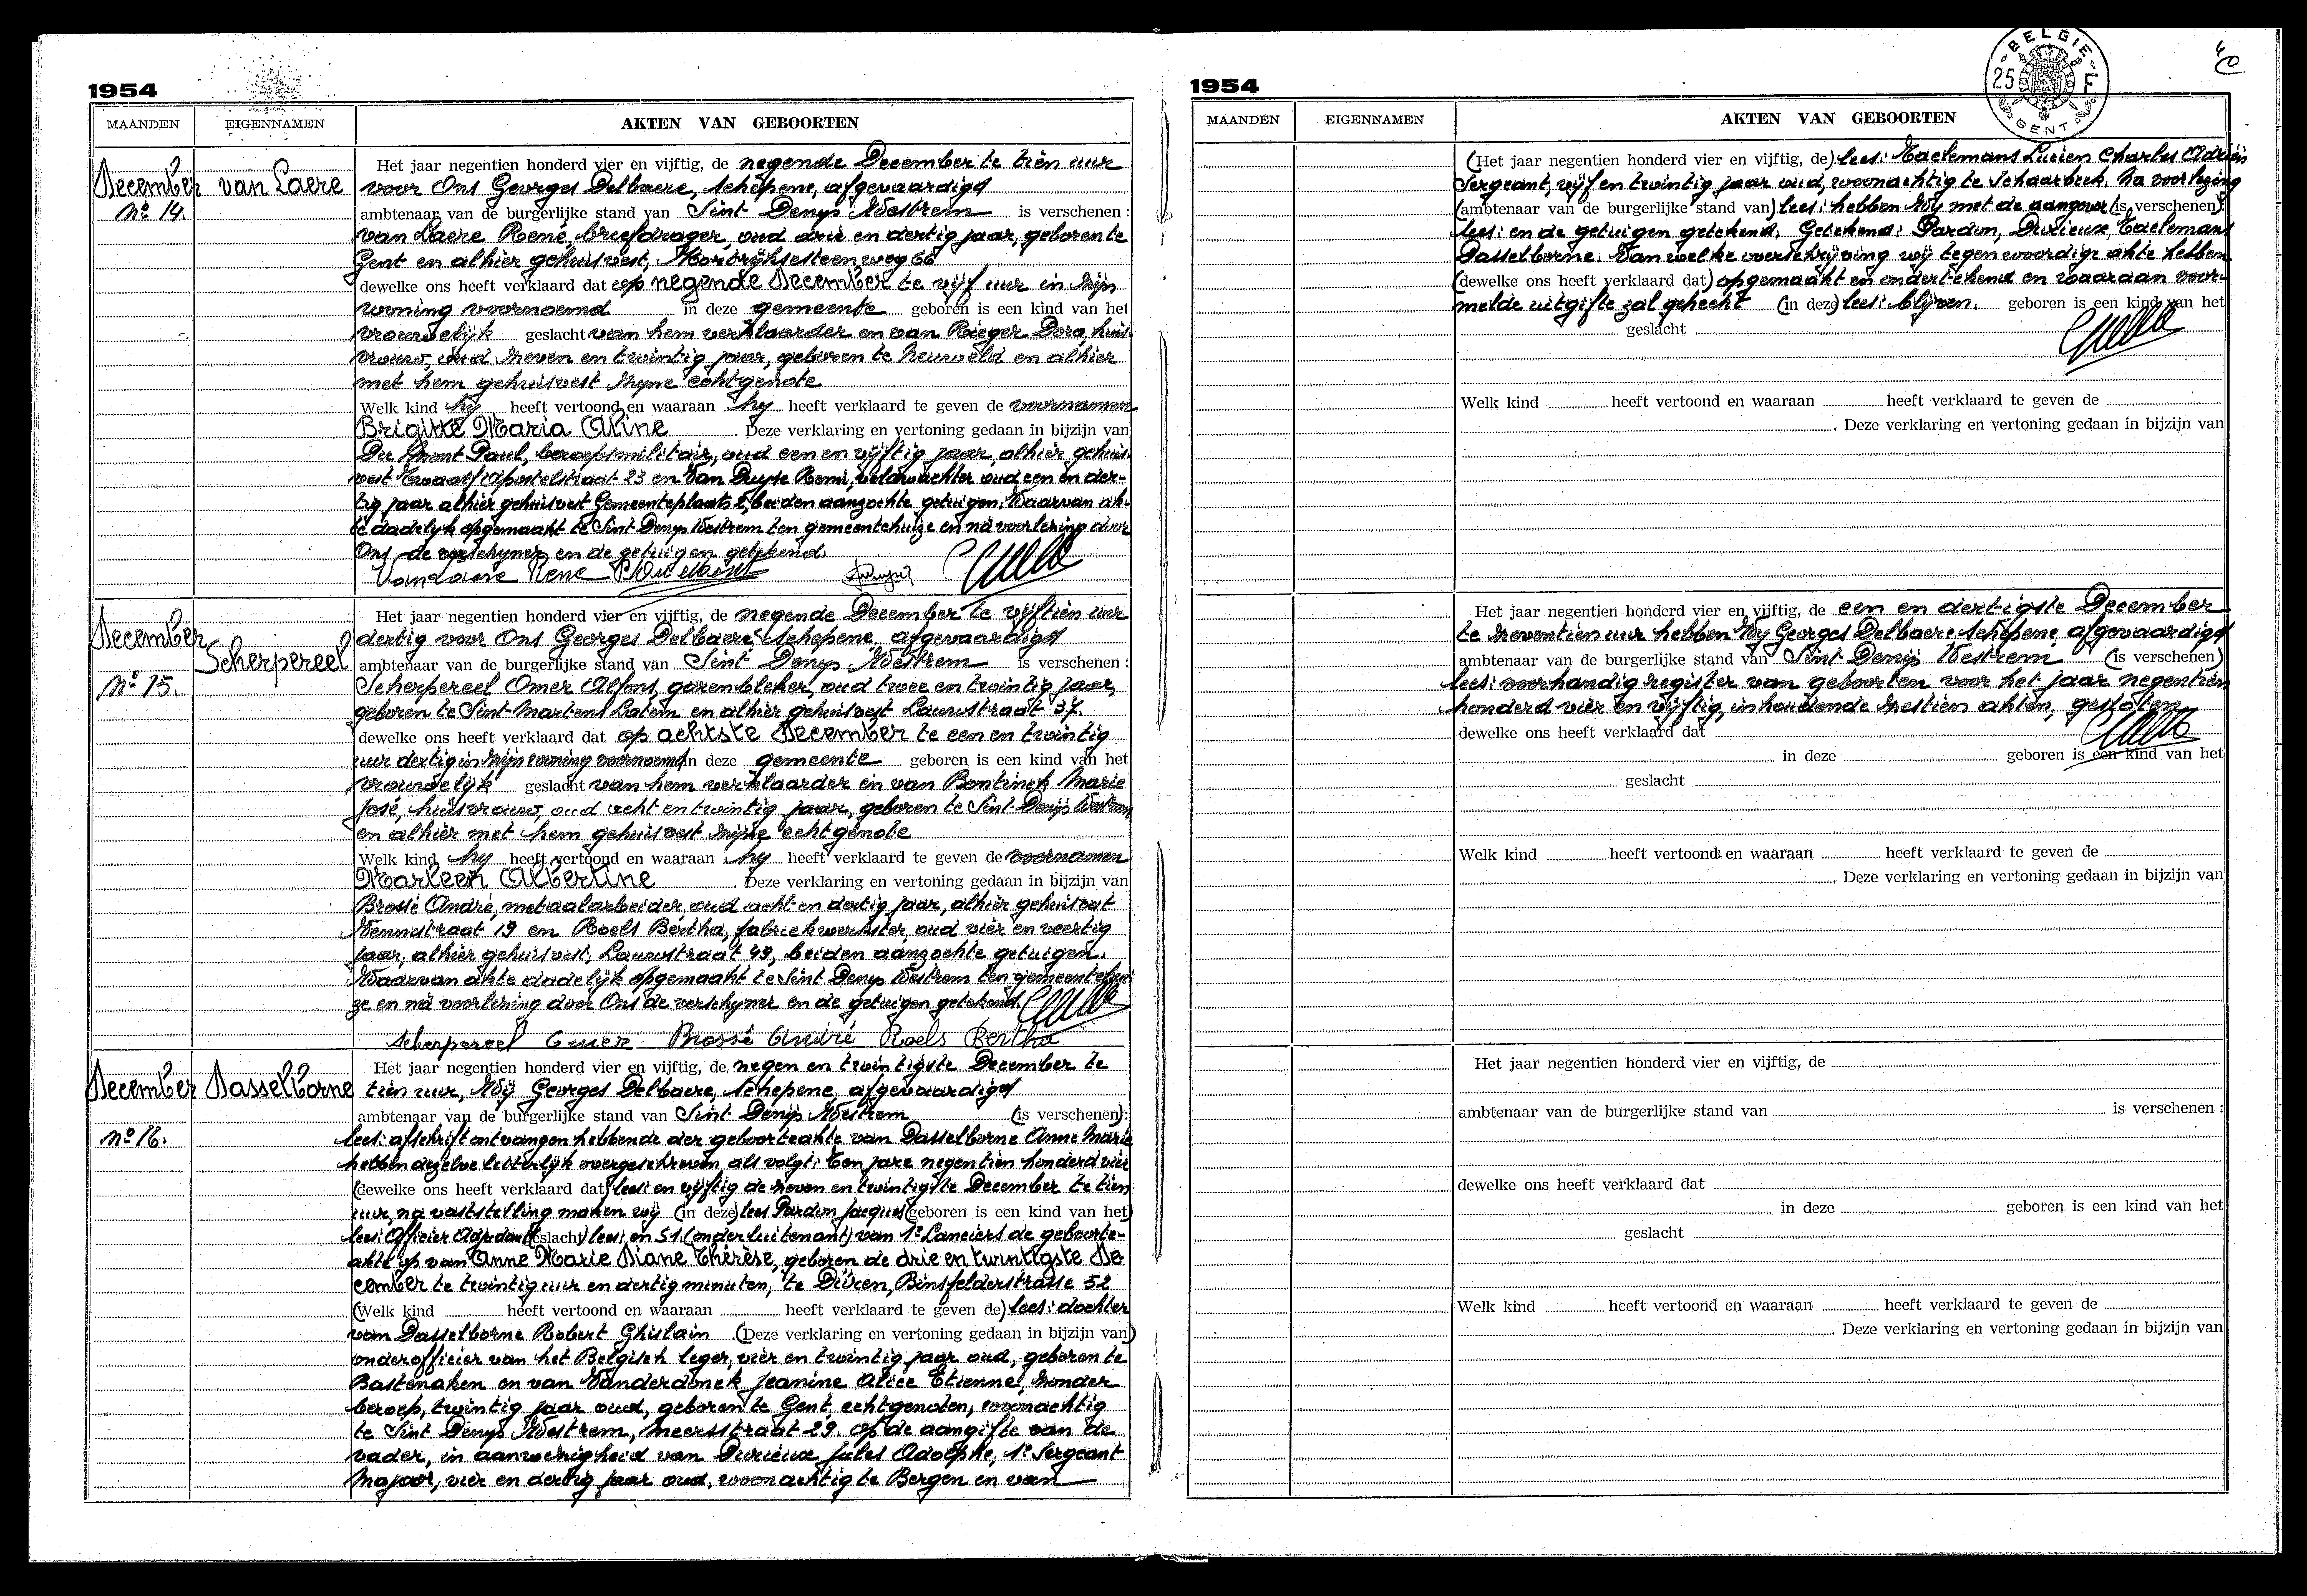 1954
MAANDEN EIGENNAMEN AKTEN VAN GEBOORTEN
December van Laere
No 14.
Het jaar negentien honderd vier en vijftig, de negende December te tien uur
voor Ons Georges Delbaere, Schepene, afgevaardigd
ambtenaar van de burgerlijke stand van Sint Denijs Westrem is verschenen :
van Laere René, briefdrager, oud drie en dertig jaar, geboren te
Gent en alhier gehuisvest, Kortrijksesteenweg 66
dewelke ons heeft verklaard dat op negende December te vijf uur in zijn
woning voornoemd in deze gemeente geboren is een kind van het
vrouwelijk geslacht van hem verklaarder en van Rieger Dora, huis-
vrouw, oud zeven en twintig jaar, geboren te en alhier
met hem gehuisvest zijne echtgenote
Welk kind hij heeft vertoond en waaraan hij heeft verklaard te geven de voornamen
Brigitte Maria Aline . Deze verklaring en vertoning gedaan in bijzijn van
Du Mont Paul, beroepsmilitair, oud een en vijftig jaar, alhier gehuis-
vest Twaalf Apostelstraat 23 en Van Duyse Remi, veldwachter oud een en der-
tig jaar alhier gehuisvest Gemeenteplaats 2, beiden aanzochte getuigen. Waarvan ak-
te dadelijk opgemaakt te Sint Denijs Westrem ten gemeentehuize en na voorlezing door
Ons de verschijner en de getuigen getekend.
Van Laere René
December Scherpereel
No 15.
Het jaar negentien honderd vier en vijftig, de negende December te vijftien uur
dertig voor Ons Georges Delbaere, Schepene, afgevaardigd
ambtenaar van de burgerlijke stand van Sint Denijs Westrem is verschenen :
Scherpereel Omer Alfons, garenbleker, oud twee en twintig jaar,
geboren te Sint-Martens Latem en alhier gehuisvest Lauwstraat 37.
dewelke ons heeft verklaard dat op achtste December te een en twintig
uur dertig in zijn woning voornoemd in deze gemeente geboren is een kind van het
vrouwelijk geslacht van hem verklaarder en van Bontinck Marie
José, huisvrouw, oud acht en twintig jaar, geboren te Sint Denijs Westrem
en alhier met hem gehuisvest zijne echtgenote
Welk kind hij heeft vertoond en waaraan hij heeft verklaard te geven de voornamen
Marleen Albertine . Deze verklaring en vertoning gedaan in bijzijn van
Brossé André, metaalarbeider, oud acht en dertig jaar, alhier gehuisvest
19 en Roels Bertha, fabriekwerkster, oud vier en veertig
jaar, alhier gehuisvest, Lauwstraat 49, beiden aanzochte getuigen.
Waarvan akte dadelijk opgemaakt te Sint Denijs Westrem ten gemeentehui-
ze en na voorlezing door Ons de verschijner en de getuigen getekend.
Scherpereel Omer Brossé André Roels Bertha
December Dasselborne
No 16.
Het jaar negentien honderd vier en vijftig, de negen en twintigste December te
tien uur, Wij Georges Delbaere, Schepene, afgevaardigd
ambtenaar van de burgerlijke stand van Sint Denijs Westrem (is verschenen):
lees: afschrift ontvangen hebbende der geboorteakte van Dasselborne Anne Marie
hebben dezelve letterlijk overgeschreven als volgt: Ten jare negentien honderd vier
(dewelke ons heeft verklaard dat) lees: en vijftig de zeven en twintigste December te tien
uur, na vaststelling maken wij (in deze) lees Pardon Jacques (geboren is een kind van het)
lees: Officier Adjudant (geslacht) lees: en S1. (onderluitenant) van 1e Lanciers de geboorte-
akte op van Anne Marie Diane Thérèse, geboren de drie en twintigste De-
cember te twintig uur en dertig minuten, te Düren, Binsfelderstrasse 52
(Welk kind heeft vertoond en waaraan heeft verklaard te geven de) lees: dochter
van Dasselborne Robert Ghislain (Deze verklaring en vertoning gedaan in bijzijn van)
onderofficier van het Belgisch leger, vier en twintig jaar oud, geboren te
Bastenaken en van Vanderdonck Jeanine Alice Etienne, zonder
beroep, twintig jaar oud, geboren te Gent, echtgenoten, woonachtig
te Sint Denijs Westrem, Meersstraat 29 op de aangifte van de
vader, in aanwezigheid van Durieux Jules Adolphe, 1e Sergeant
Majoor, vier en dertig jaar oud, woonachtig te Bergen en van
1954
BELGIE
25 F
GENT
40
MAANDEN EIGENNAMEN AKTEN VAN GEBOORTEN
(Het jaar negentien honderd vier en vijftig, de) lees: Taelemans Lucien Charles Adrien
Sergeant, vijf en twintig jaar oud, woonachtig te Schaarbeek. Na voorlezing
(ambtenaar van de burgerlijke stand van) lees: hebben Wij met de aangever (is verschenen):
lees: en de getuigen getekend. Getekend: Pardon, Durieux, Taelemans
Dasselborne. Van welke overschrijving wij tegenwoordige akte hebben
(dewelke ons heeft verklaard dat) opgemaakt en ondertekend en waaraan voor-
melde uitgifte zal gehecht (in deze) lees: blijven. geboren is een kind van het
geslacht
Welk kind heeft vertoond en waaraan heeft verklaard te geven de
. Deze verklaring en vertoning gedaan in bijzijn van
Het jaar negentien honderd vier en vijftig, de een en dertigste December
te zeventien uur hebben Wij Georges Delbaere Schepene, afgevaardigd
ambtenaar van de burgerlijke stand van Sint Denijs Westrem (is verschenen)
lees: voorhandig register van geboorten voor het jaar negentien
honderd vier en vijftig, inhoudende zestien akten, gesloten
dewelke ons heeft verklaard dat
in deze geboren is een kind van het
geslacht
Welk kind heeft vertoond en waaraan heeft verklaard te geven de
. Deze verklaring en vertoning gedaan in bijzijn van
Het jaar negentien honderd vier en vijftig, de
ambtenaar van de burgerlijke stand van is verschenen :
dewelke ons heeft verklaard dat
in deze geboren is een kind van het
geslacht
Welk kind heeft vertoond en waaraan heeft verklaard te geven de
. Deze verklaring en vertoning gedaan in bijzijn van